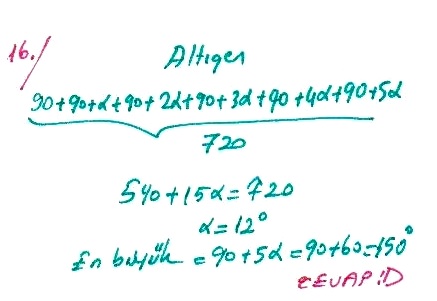 16./ Altıgen
90+90+α+90+2α+90+3α+90+4α+90+5α
720
540+15α=720
α=12°
En büyük = 90+5α=90+60=150°
CEVAP:D